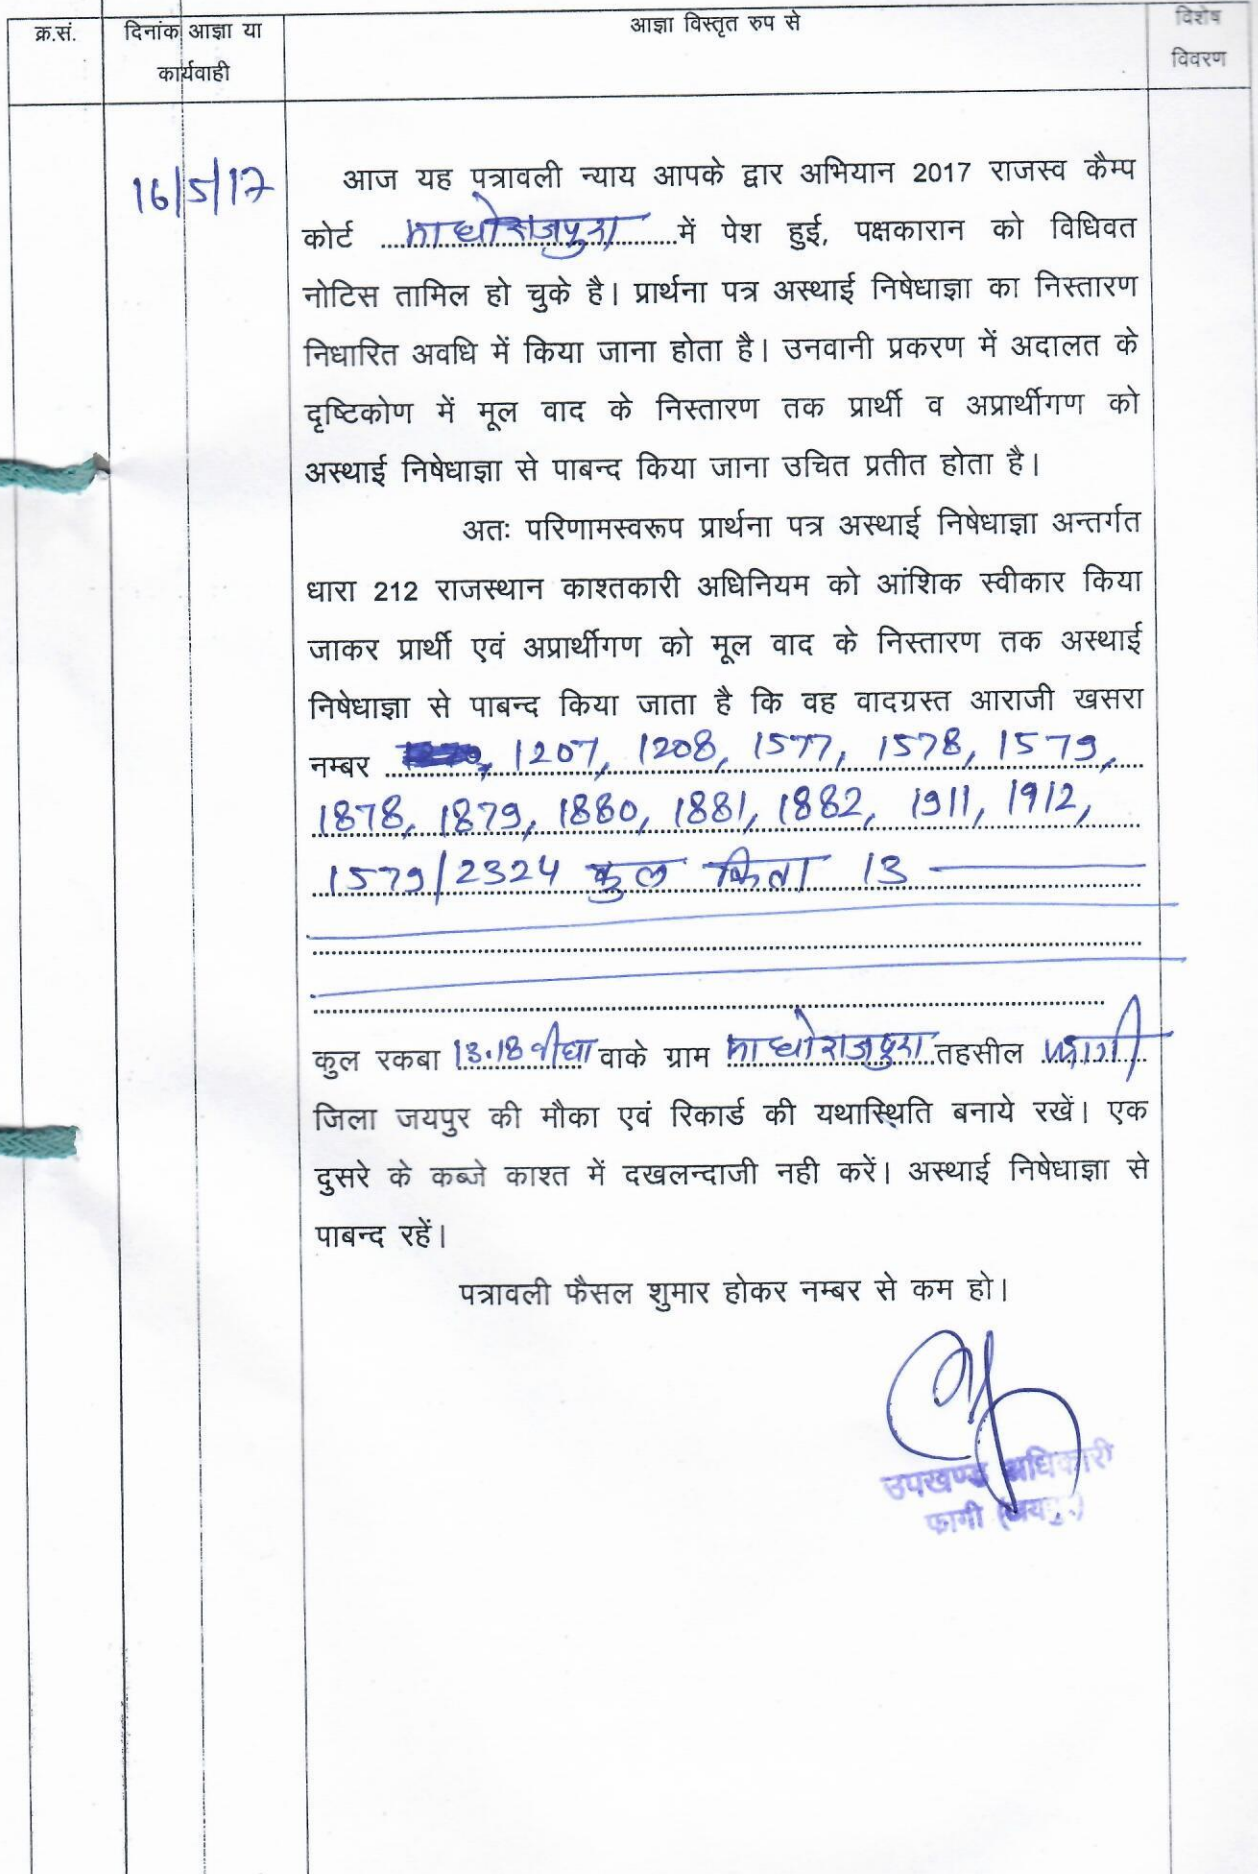 क्र.सं. दिनांक आज्ञा या आज्ञा विस्तृत रुप से विशेष
कार्यवाही विवरण
16/5/17 आज यह पत्रावली न्याय आपके द्वार अभियान 2017 राजस्व कैम्प
कोर्ट ....माधोराजपुरा....में पेश हुई, पक्षकारान को विधिवत
नोटिस तामिल हो चुके है। प्रार्थना पत्र अस्थाई निषेधाज्ञा का निस्तारण
निधारित अवधि में किया जाना होता है। उनवानी प्रकरण में अदालत के
दृष्टिकोण में मूल वाद के निस्तारण तक प्रार्थी व अप्रार्थीगण को
अस्थाई निषेधाज्ञा से पाबन्द किया जाना उचित प्रतीत होता है।
अतः परिणामस्वरूप प्रार्थना पत्र अस्थाई निषेधाज्ञा अन्तर्गत
धारा 212 राजस्थान काश्तकारी अधिनियम को आंशिक स्वीकार किया
जाकर प्रार्थी एवं अप्रार्थीगण को मूल वाद के निस्तारण तक अस्थाई
निषेधाज्ञा से पाबन्द किया जाता है कि वह वादग्रस्त आराजी खसरा
नम्बर 1207, 1208, 1577, 1578, 1579,
1878, 1879, 1880, 1881, 1882, 1911, 1912,
1579/2324 कुल किता 13
कुल रकबा 13.18 बीघा वाके ग्राम माधोराजपुरा तहसील फागी
जिला जयपुर की मौका एवं रिकार्ड की यथास्थिति बनाये रखें। एक
दुसरे के कब्जे काश्त में दखलन्दाजी नही करें। अस्थाई निषेधाज्ञा से
पाबन्द रहें।
पत्रावली फैसल शुमार होकर नम्बर से कम हो।
उपखण्ड अधिकारी
फागी (जयपुर)